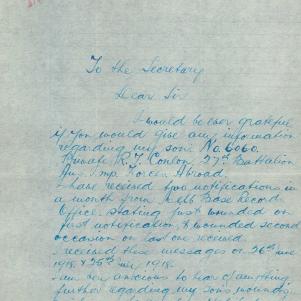 To the Secretary
Dear Sir
I would be ever grateful
if you would give any information
regarding my son No 6060.
Private R. J. Conlon, 27th Battalion
Aus. Imp. Forces Abroad.
I have received two notifications in
a month from Melb Base Record
Office, stating just wounded on
first notification, & wounded second
occasion on last one received.
I received these messages on 26th June
1918 & 25th 1918.
I am very anxious to hear of anything
further regarding my son's wounds